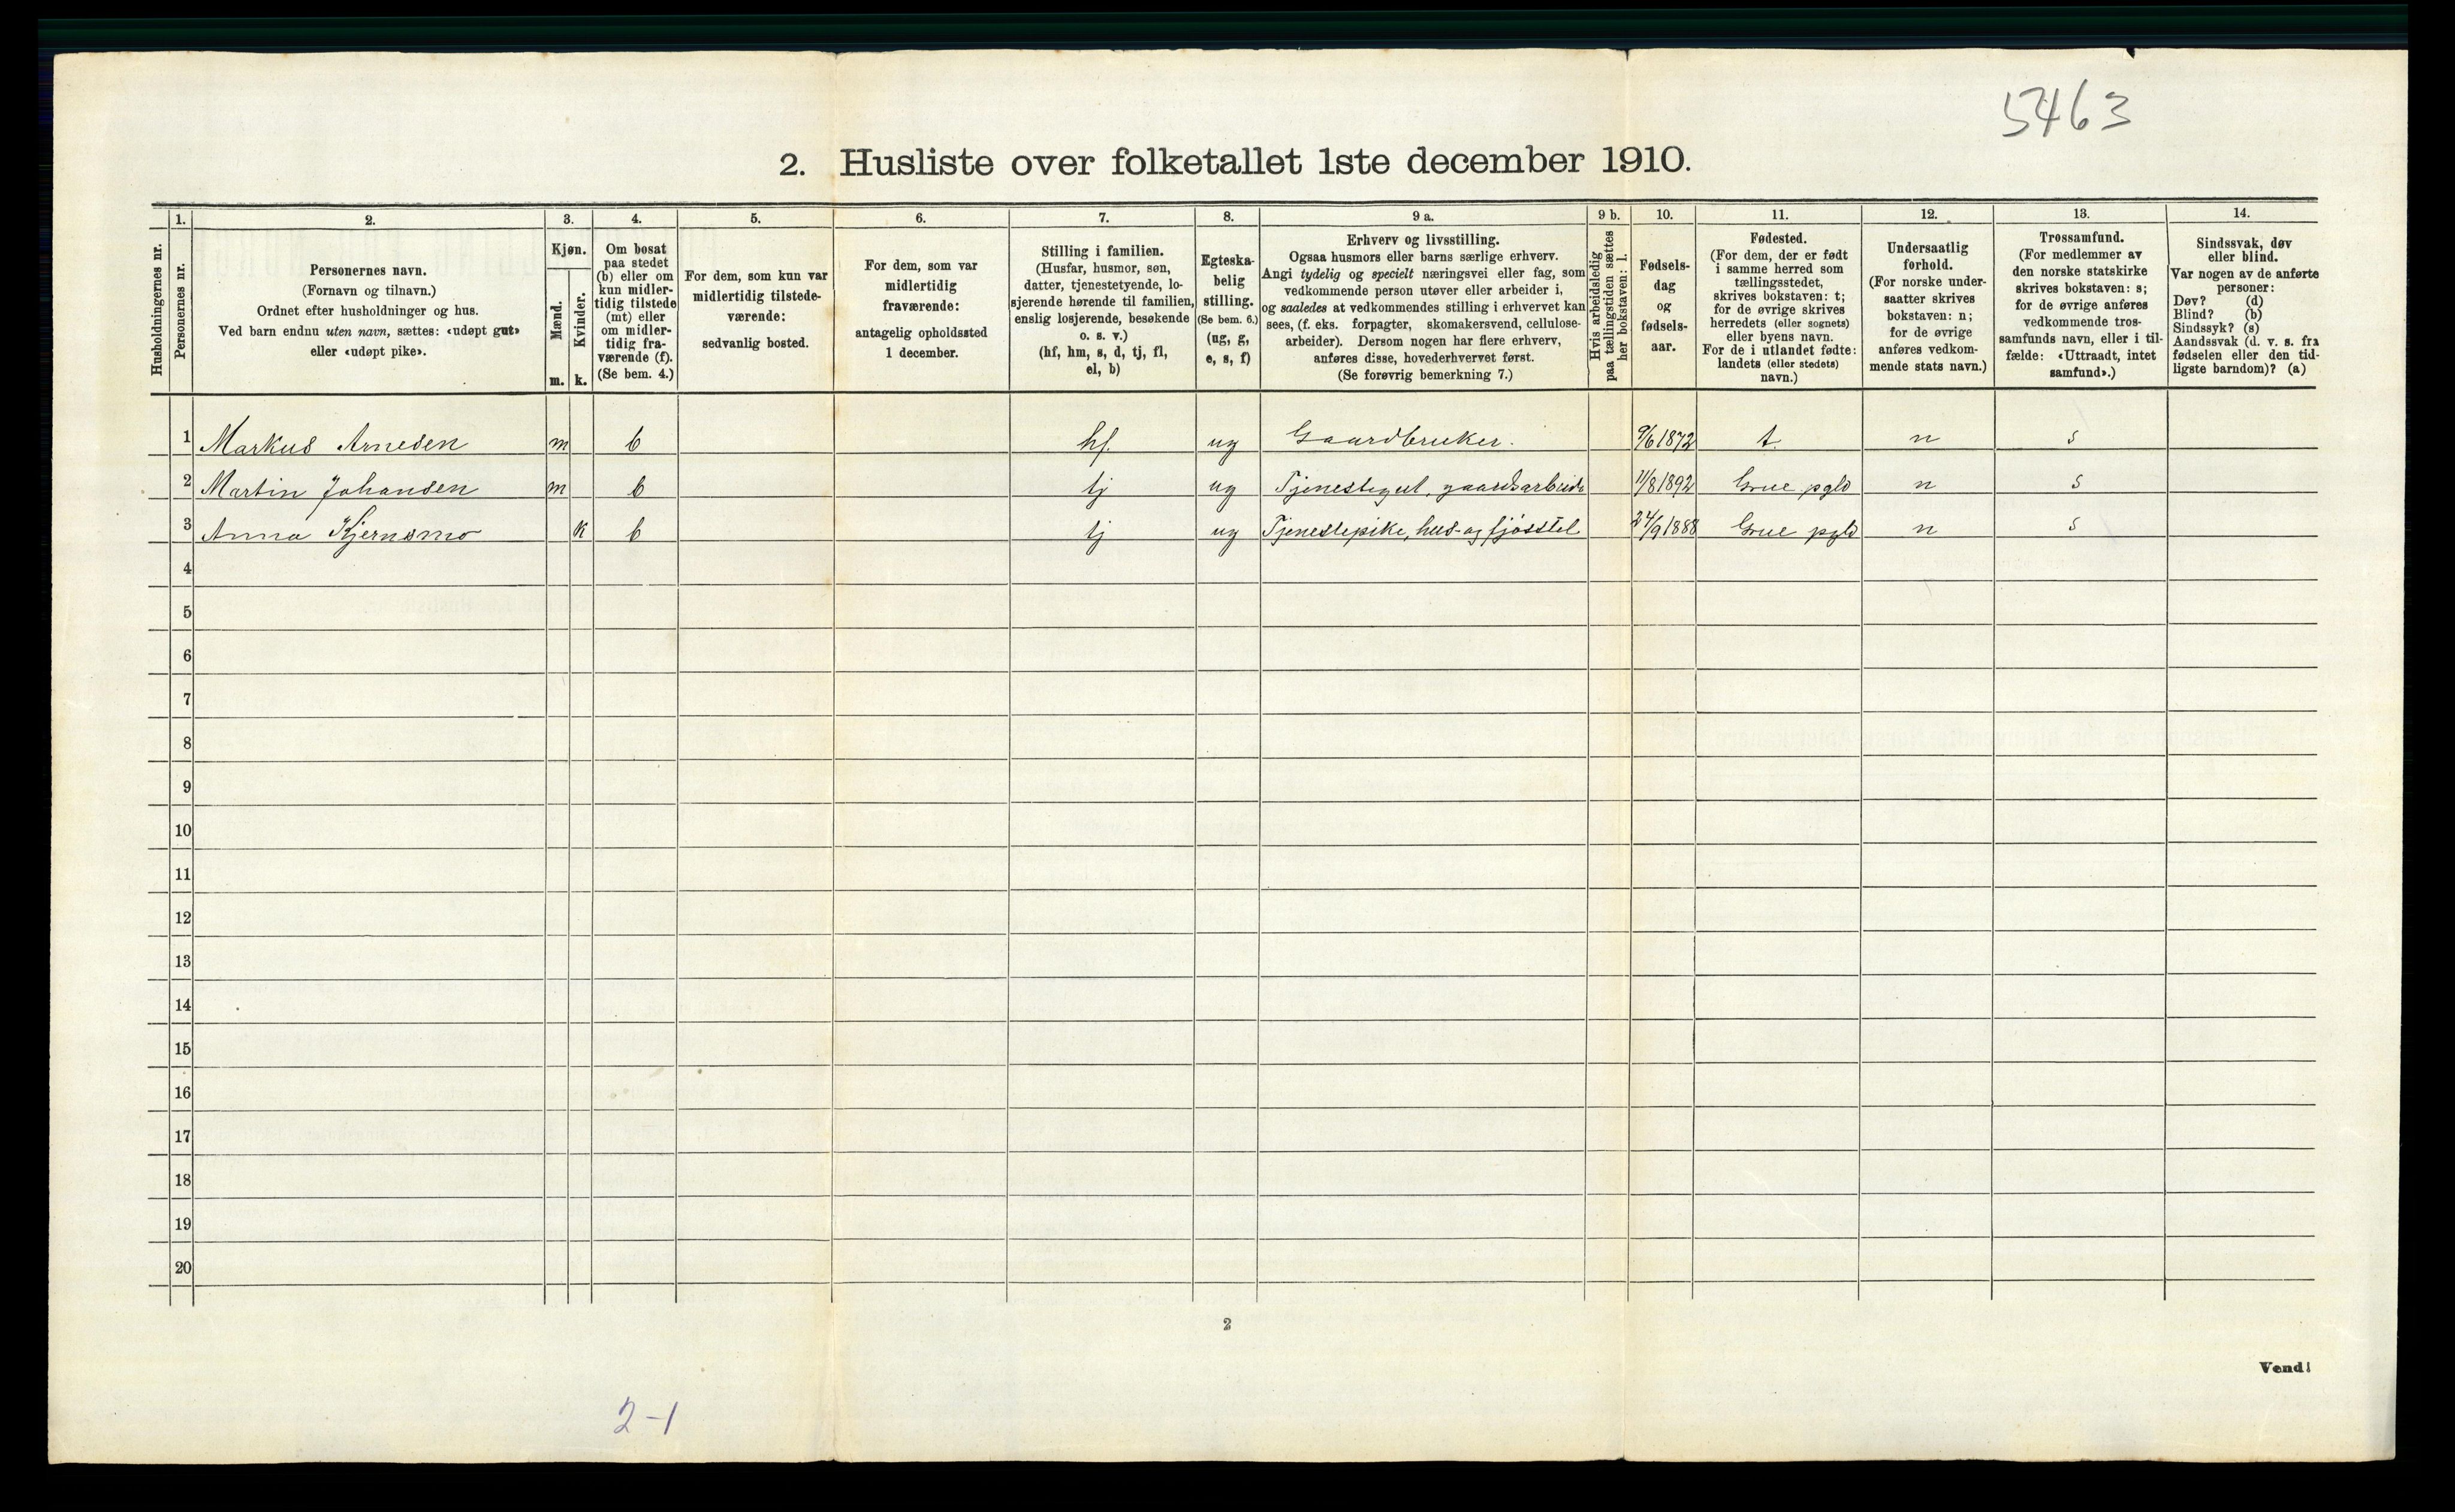 5463
2. Husliste over folketallet 1ste december 1910.
Husholdningernes nr.
1.
Personernes nr.
2.
Personernes navn.
(Fornavn og tilnavn.)
Ordnet efter husholdninger og hus.
Ved barn endnu uten navn, sættes: «udøpt gut»
eller «udøpt pike».
3.
Kjøn.
Mænd.
Kvinder.
m. k.
4.
Om bosat
paa stedet
(b) eller om
kun midler-
tidig tilstede
(mt) eller
om midler-
tidig fra-
værende (f).
(Se bem. 4.)
5.
For dem, som kun var
midlertidig tilstede-
værende:
sedvanlig bosted.
6.
For dem, som var
midlertidig
fraværende:
antagelig opholdssted
1 december.
7.
Stilling i familien.
(Husfar, husmor, søn,
datter, tjenestetyende, lo-
sjerende hørende til familien,
enslig losjerende, besøkende
o. s. v.)
(hf, hm, s, d, tj, fl,
el, b)
8.
Egteska-
belig
stilling.
(Se bem. 6.)
(ug, g,
e, s, f)
9 a.
Erhverv og livsstilling.
Ogsaa husmors eller barns særlige erhverv.
Angi tydelig og specielt næringsvei eller fag, som
vedkommende person utøver eller arbeider i,
og saaledes at vedkommendes stilling i erhvervet kan
sees, (f. eks. forpagter, skomakersvend, cellulose-
arbeider). Dersom nogen har flere erhverv,
anføres disse, hovederhvervet først.
(Se forøvrig bemerkning 7.)
9 b.
Hvis arbeidsledig
paa tællingstiden sættes
her bokstaven: l.
10.
Fødsels-
dag
og
fødsels-
aar.
11.
Fødested.
(For dem, der er født
i samme herred som
tællingsstedet,
skrives bokstaven: t;
for de øvrige skrives
herredets (eller sognets)
eller byens navn.
For de i utlandet fødte:
landets (eller stedets)
navn.)
12.
Undersaatlig
forhold.
(For norske under-
saatter skrives
bokstaven: n;
for de øvrige
anføres vedkom-
mende stats navn.)
13.
Trossamfund.
(For medlemmer av
den norske statskirke
skrives bokstaven: s;
for de øvrige anføres
vedkommende tros-
samfunds navn, eller i til-
fælde: «Uttraadt, intet
samfund».)
14.
Sindssvak, døv
eller blind.
Var nogen av de anførte
personer:
Døv? (d)
Blind? (b)
Sindssyk? (s)
Aandssvak (d. v. s. fra
fødselen eller den tid-
ligste barndom)? (a)
1 Markus Arnesen m b hf. ug Gaardbruker. 9/6 1872 t. n s
2 Martin Johansen m b tj ug Tjenestegut, gaardsarbeide 11/8 1892 Grue pgld n s
3 Anna Kjernsmo k b tj ug Tjenestepike, hus- og fjøsstel 24/9 1888 Grue pgld n s
4
5
6
7
8
9
10
11
12
13
14
15
16
17
18
19
20
2
Vend!
2-1